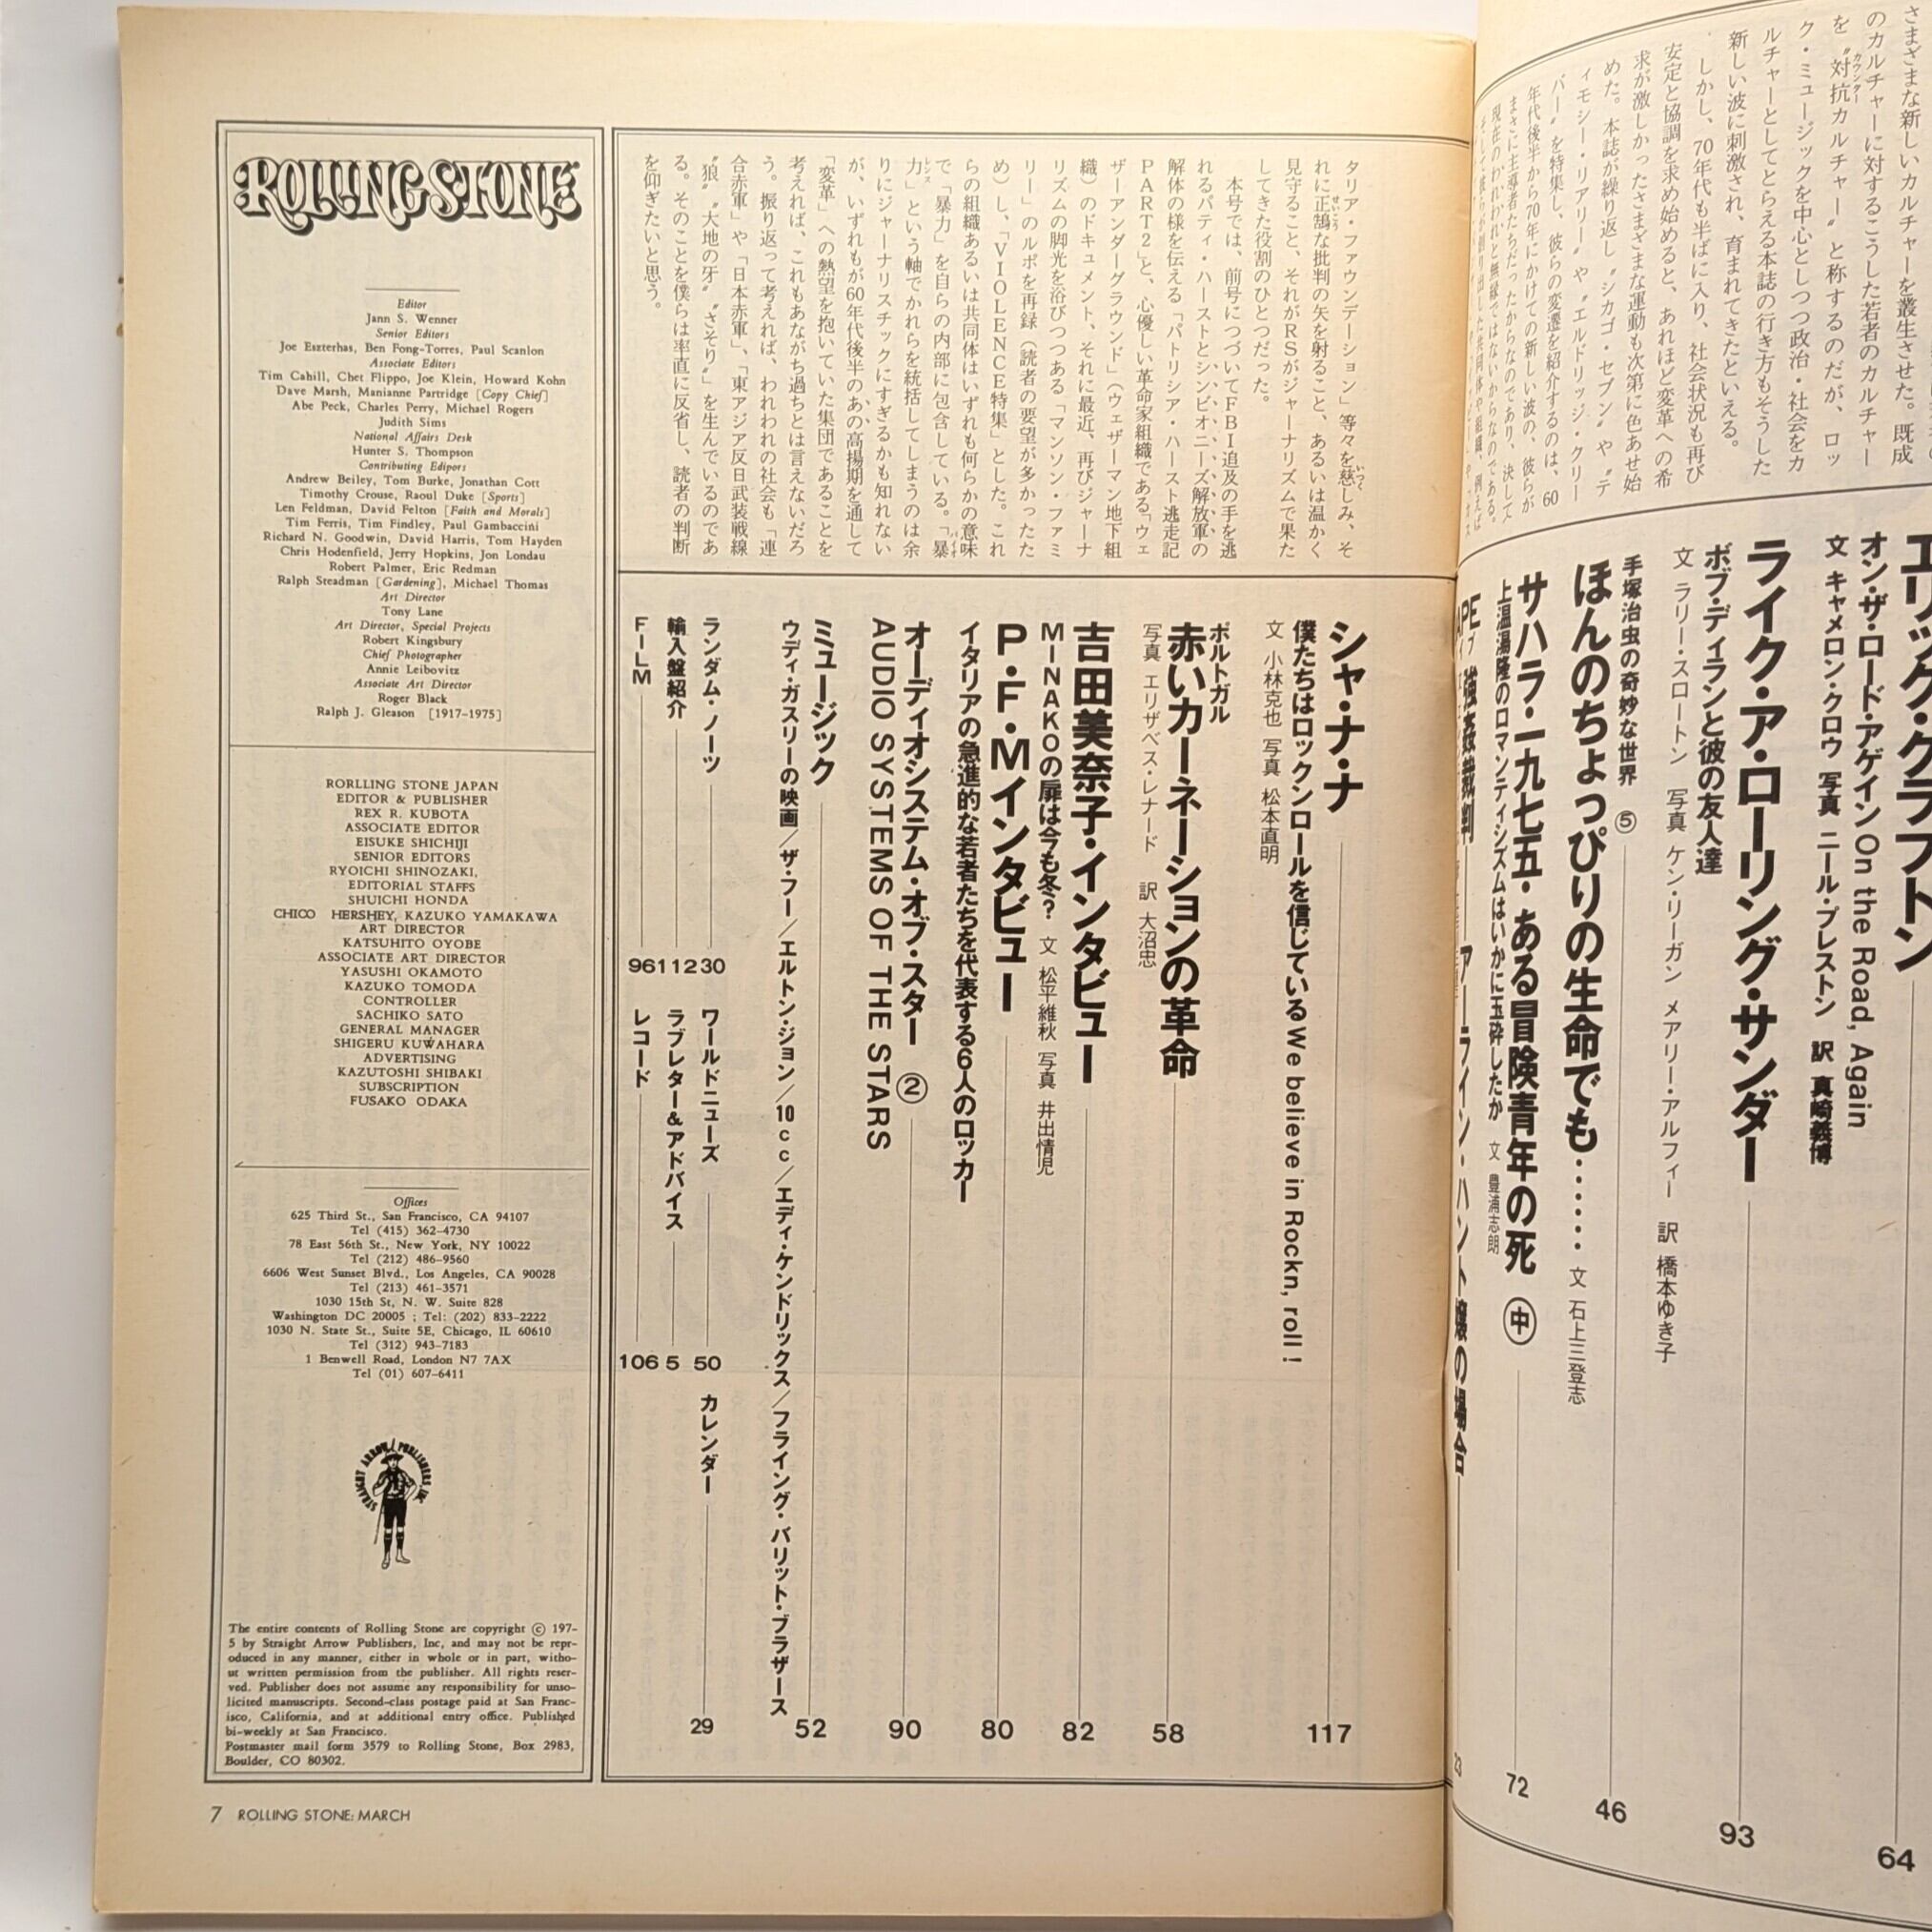 さまざまな新しいカルチャーを叢生させた。既成
のカルチャーに対するこうした若者のカルチャー
を〝対抗カルチャー〟と称するのだが、ロッ
カウンター
ク・ミュージックを中心としつつ政治・社会をカ
ルチャーとしてとらえる本誌の行き方もそうした
新しい波に刺激され、育まれてきたといえる。
しかし、70年代も半ばに入り、社会状況も再び
安定と協調を求め始めると、あれほど変革への希
求が激しかったさまざまな運動も次第に色あせ始
めた。本誌が繰り返し〝シカゴ・セブン〟や〝テ
ィモシー・リアリー〟や〝エルドリッジ・クリー
バー〟を特集し、彼らの変遷を紹介するのは、60
年代後半から70年にかけての新しい波の、彼らが
まさに主導者たちだったからなのであり、決して
現在のわれわれと無縁ではないからなのである。
エリック・クラプトン
オン・ザ・ロード・アゲイン On the Road, Again
文 キャメロン・クロウ 写真 ニール・プレストン 訳 真崎義博
64
ライク・ア・ローリング・サンダー
ボブ・ディランと彼の友人達
文 ラリー・スロートン 写真 ケン・リーガン メアリー・アルフィー 訳 橋本ゆき子
93
手塚治虫の奇妙な世界 ⑤
ほんのちょっぴりの生命でも……
文 石上三登志
46
サハラ・一九七五・ある冒険青年の死 ㊥
上温湯隆のロマンティシズムはいかに玉砕したか 文 豊浦志朗
72
強姦裁判 アーライン・ハント嬢の場合
23
タリア・ファウンデーション」等々を慈しみ、そ
いつく
れに正鵠な批判の矢を射ること、あるいは温かく
せいこう
見守ること、それがRSがジャーナリズムで果た
してきた役割のひとつだった。
本号では、前号につづいてFBI追及の手を逃
れるパティ・ハーストとシンビオニーズ解放軍の
解体の様を伝える「パトリシア・ハースト逃走記
PART2」と、心優しい革命家組織である「ウェ
ザーアンダーグラウンド」(ウェザーマン地下組
織)のドキュメント、それに最近、再びジャーナ
リズムの脚光を浴びつつある「マンソン・ファミ
リー」のルポを再録(読者の要望が多かったた
め)し、「VIOLENCE特集」とした。これ
らの組織あるいは共同体はいずれも何らかの意味
で「暴力」を自らの内部に包含している。「暴
力」という軸でかれらを統括してしまうのは余
りにジャーナリスチックにすぎるかも知れない
が、いずれもが60年代後半のあの高揚期を通して
「変革」への熱望を抱いていた集団であることを
考えれば、これもあながち過ちとは言えないだろ
う。振り返って考えれば、われわれの社会も「連
合赤軍」や「日本赤軍」、「東アジア反日武装戦線
〝狼〟〝大地の牙〟〝さそり〟」を生んでいるのであ
る。そのことを僕らは率直に反省し、読者の判断
を仰ぎたいと思う。
シャ・ナ・ナ
僕たちはロックンロールを信じている We believe in Rockn, roll !
文 小林克也 写真 松本直明
117
ポルトガル
赤いカーネーションの革命
写真 エリザベス・レナード 訳 大沼忠
58
吉田美奈子・インタビュー
MINAKOの扉は今も冬? 文 松平維秋 写真 井出情児
82
P・F・Mインタビュー
イタリアの急進的な若者たちを代表する6人のロッカー
80
オーディオシステム・オブ・スター ②
AUDIO SYSTEMS OF THE STARS
90
ミュージック
ウディ・ガスリーの映画/ザ・フー/エルトン・ジョン/10cc/エディ・ケンドリックス/フライング・バリット・ブラザース
52
ランダム・ノーツ
30
ワールドニューズ
50
カレンダー
29
輸入盤紹介
112
ラブレター&アドバイス
5
FILM
96
レコード
106
ROLLING STONE
Editor
Jann S. Wenner
Senior Editors
Joe Eszterhas, Ben Fong-Torres, Paul Scanlon
Associate Editors
Tim Cahill, Chet Flippo, Joe Klein, Howard Kohn
Dave Marsh, Manianne Partridge [Copy Chief]
Abe Peck, Charles Perry, Michael Rogers
Judith Sims
National Affairs Desk
Hunter S. Thompson
Contributing Edipors
Andrew Beiley, Tom Burke, Jonathan Cott
Timothy Crouse, Raoul Duke [Sports]
Len Feldman, David Felton [Faith and Morals]
Tim Ferris, Tim Findley, Paul Gambaccini
Richard N. Goodwin, David Harris, Tom Hayden
Chris Hodenfield, Jerry Hopkins, Jon Londau
Robert Palmer, Eric Redman
Ralph Steadman [Gardening], Michael Thomas
Art Director
Tony Lane
Art Director, Special Projects
Robert Kingsbury
Chief Photographer
Annie Leibovitz
Associate Art Director
Roger Black
Ralph J. Gleason [1917-1975]
RORLLING STONE JAPAN
EDITOR & PUBLISHER
REX R. KUBOTA
ASSOCIATE EDITOR
EISUKE SHICHIJI
SENIOR EDITORS
RYOICHI SHINOZAKI,
EDITORIAL STAFFS
SHUICHI HONDA
CHICO HERSHEY, KAZUKO YAMAKAWA
ART DIRECTOR
KATSUHITO OYOBE
ASSOCIATE ART DIRECTOR
YASUSHI OKAMOTO
KAZUKO TOMODA
CONTROLLER
SACHIKO SATO
GENERAL MANAGER
SHIGERU KUWAHARA
ADVERTISING
KAZUTOSHI SHIBAKI
SUBSCRIPTION
FUSAKO ODAKA
Offices
625 Third St., San Francisco, CA 94107
Tel (415) 362-4730
78 East 56th St., New York, NY 10022
Tel (212) 486-9560
6606 West Sunset Blvd., Los Angeles, CA 90028
Tel (213) 461-3571
1030 15th St, N. W. Suite 828
Washington DC 20005 ; Tel: (202) 833-2222
1030 N. State St., Suite 5E, Chicago, IL 60610
Tel (312) 943-7183
1 Benwell Road, London N7 7AX
Tel (01) 607-6411
STRAIGHT ARROW PUBLISHERS, INC.
The entire contents of Rolling Stone are copyright © 197-
5 by Straight Arrow Publishers, Inc, and may not be repr-
oduced in any manner, either in whole or in part, witho-
ut written permission from the publisher. All rights reser-
ved. Publisher does not assume any responsibility for unso-
licited manuscripts. Second-class postage paid at San Franc-
isco, California, and at additional entry office. Published
bi-weekly at San Francisco.
Postmaster mail form 3579 to Rolling Stone, Box 2983,
Boulder, CO 80302.
7 ROLLING STONE: MARCH